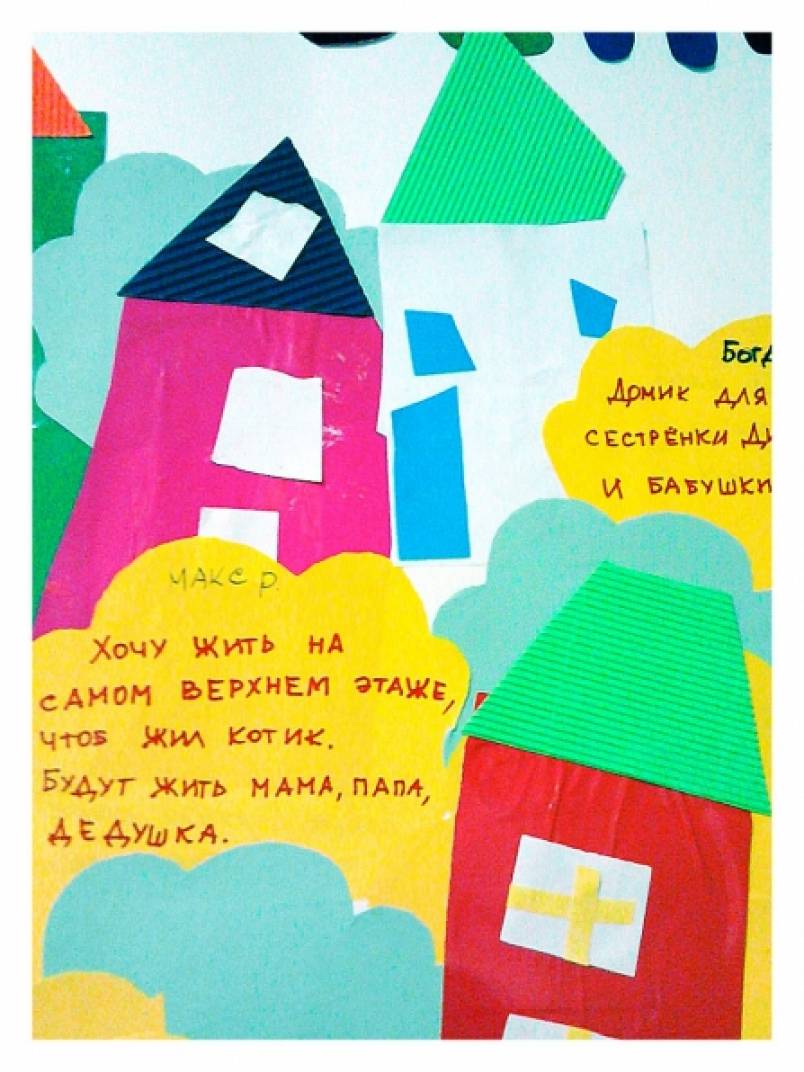 Домик для
сестрёнки
и бабушки
Макс Р.
Хочу жить на
самом верхнем этаже,
чтоб жил котик.
Будут жить мама, папа,
дедушка.